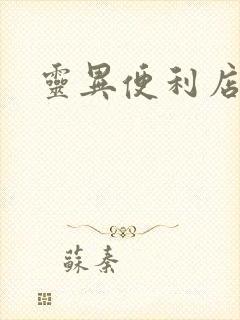 靈異便利店
蘇秦